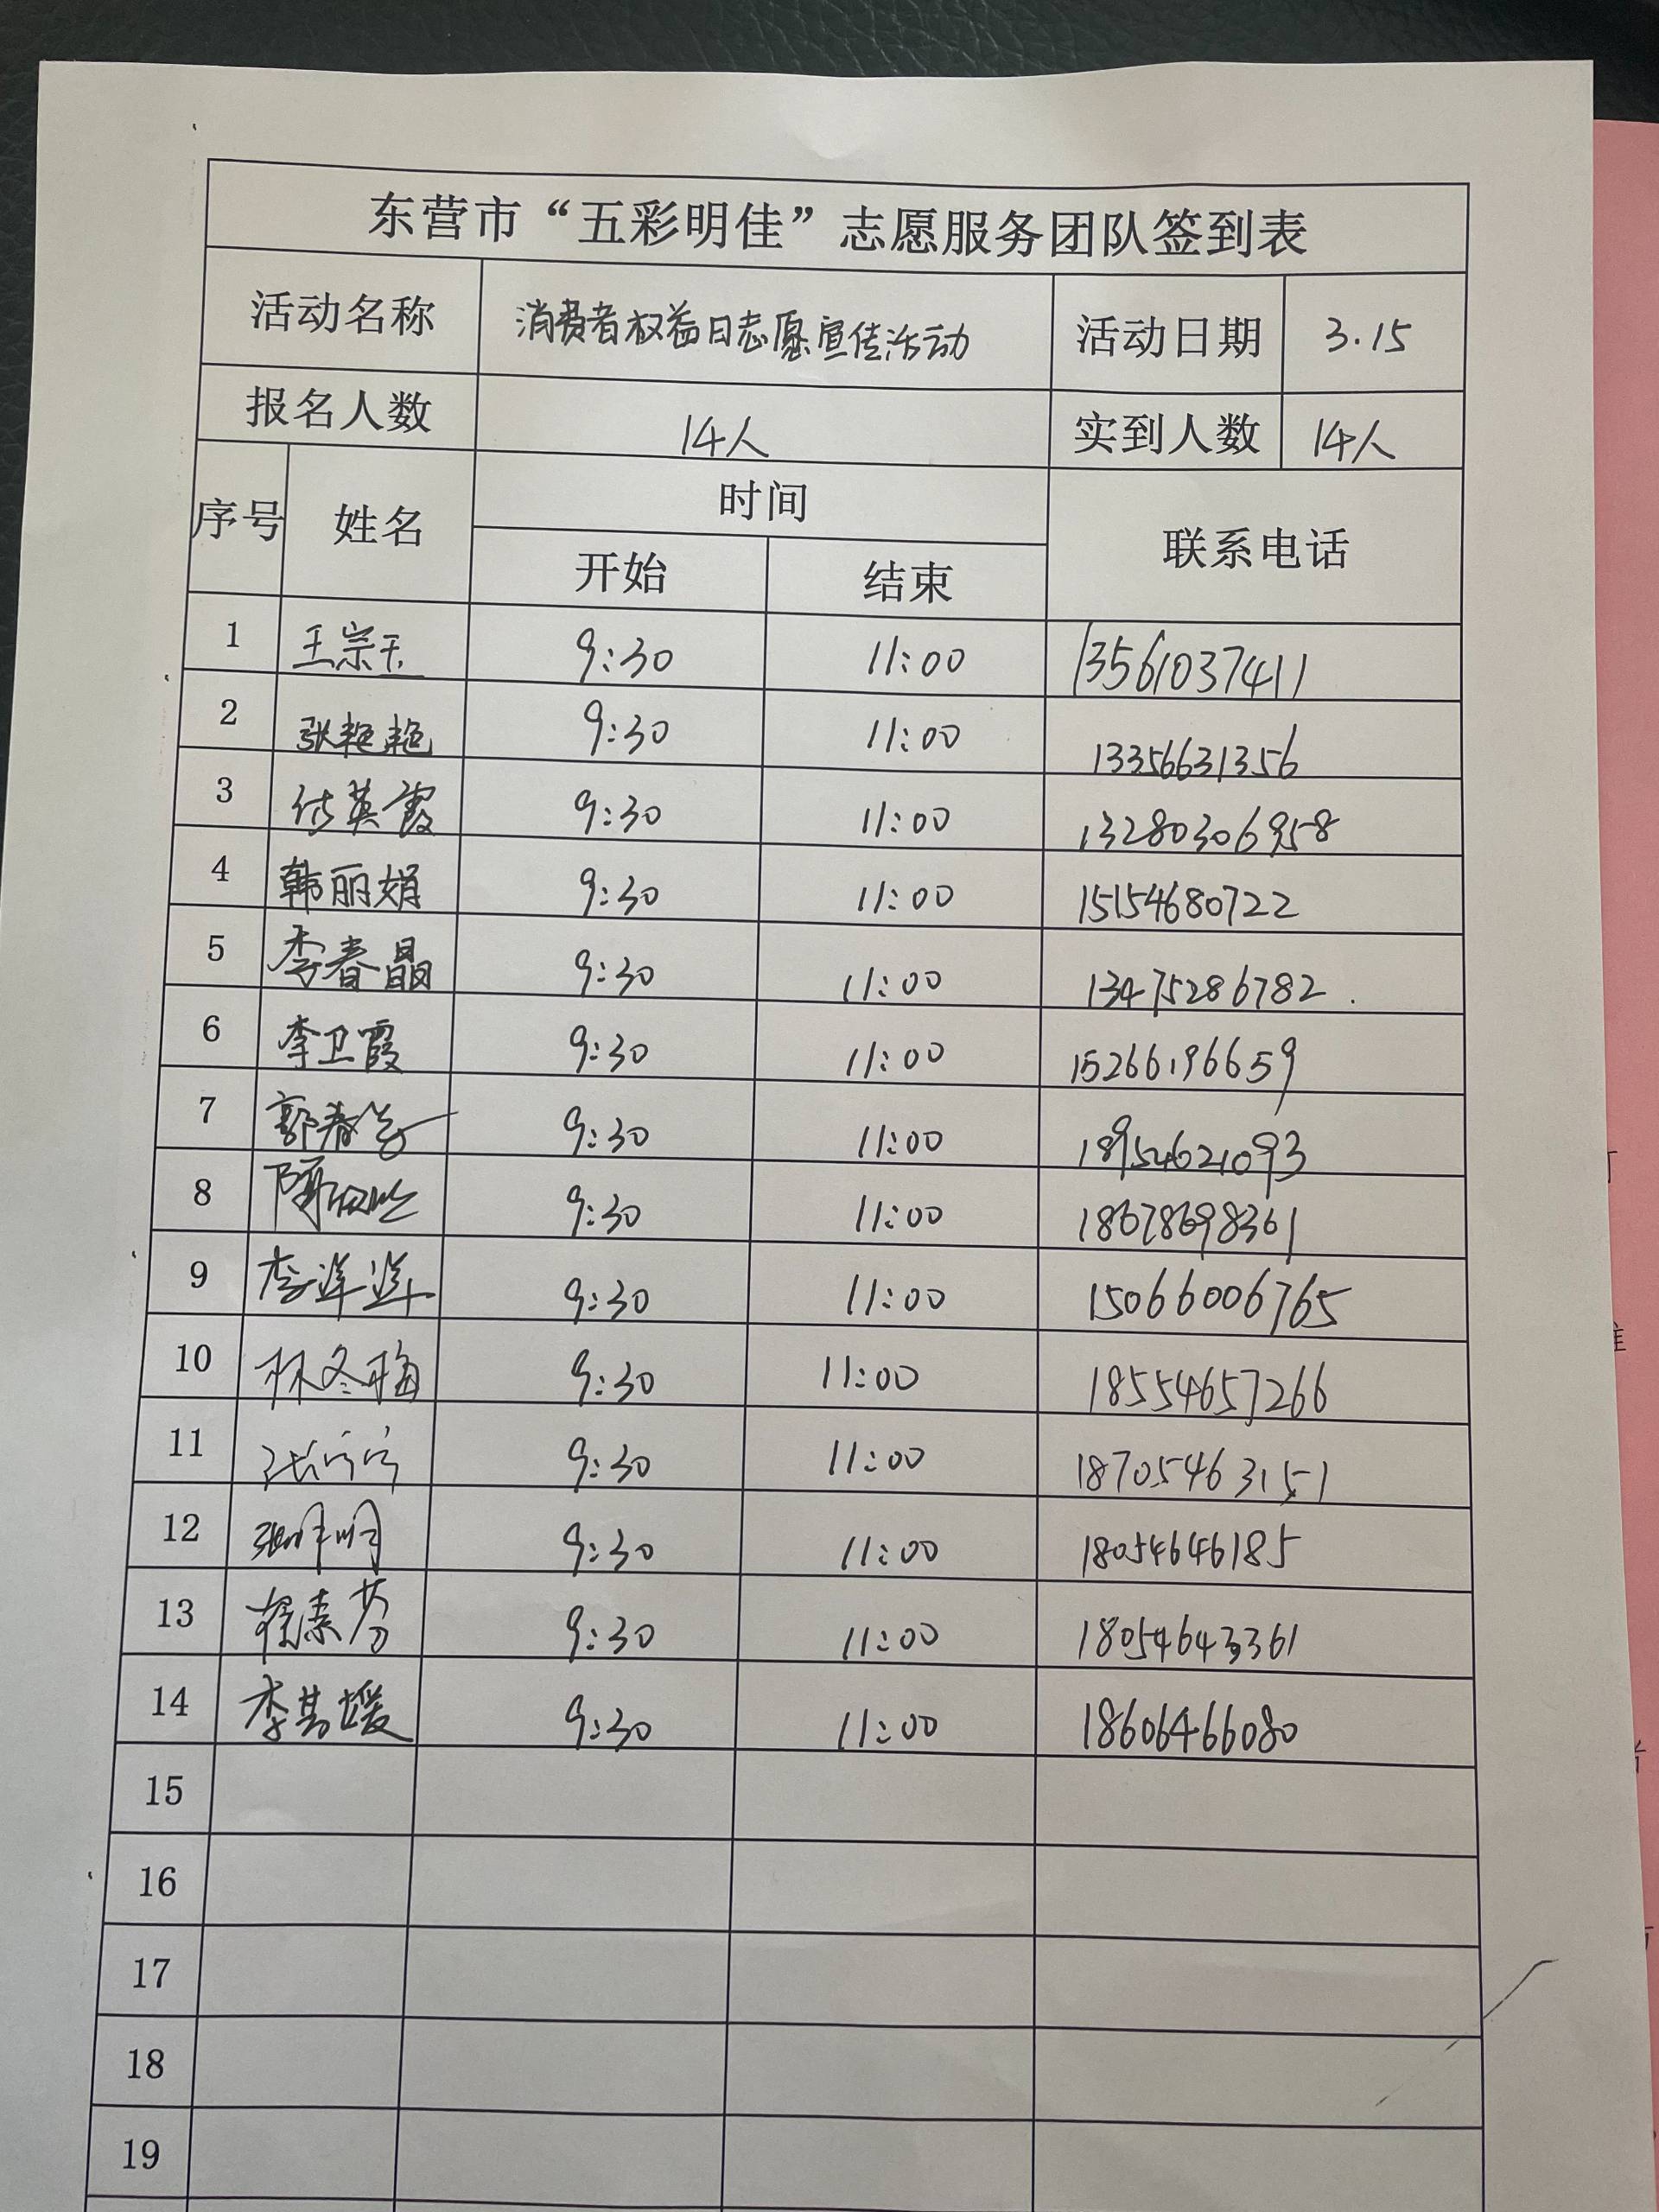 东营市“五彩明佳”志愿服务团队签到表
活动名称 消费者权益日志愿宣传活动 活动日期 3.15
报名人数 14人 实到人数 14人
序号 姓名 时间 联系电话
开始 结束
1 王宗玉 9:30 11:00 13561037411
2 张艳艳 9:30 11:00 13356631356
3 付英霞 9:30 11:00 13280306958
4 韩丽娟 9:30 11:00 15154680722
5 李春晶 9:30 11:00 13475286782
6 李卫霞 9:30 11:00 15266196659
7 郭春 9:30 11:00 18954621093
8 9:30 11:00 18678698361
9 李洋洋 9:30 11:00 15066006765
10 林冬梅 9:30 11:00 18554657266
11 张宁宁 9:30 11:00 18705463151
12 张明明 9:30 11:00 18054646185
13 程素芬 9:30 11:00 18054643361
14 李 媛 9:30 11:00 18606466080
15
16
17
18
19